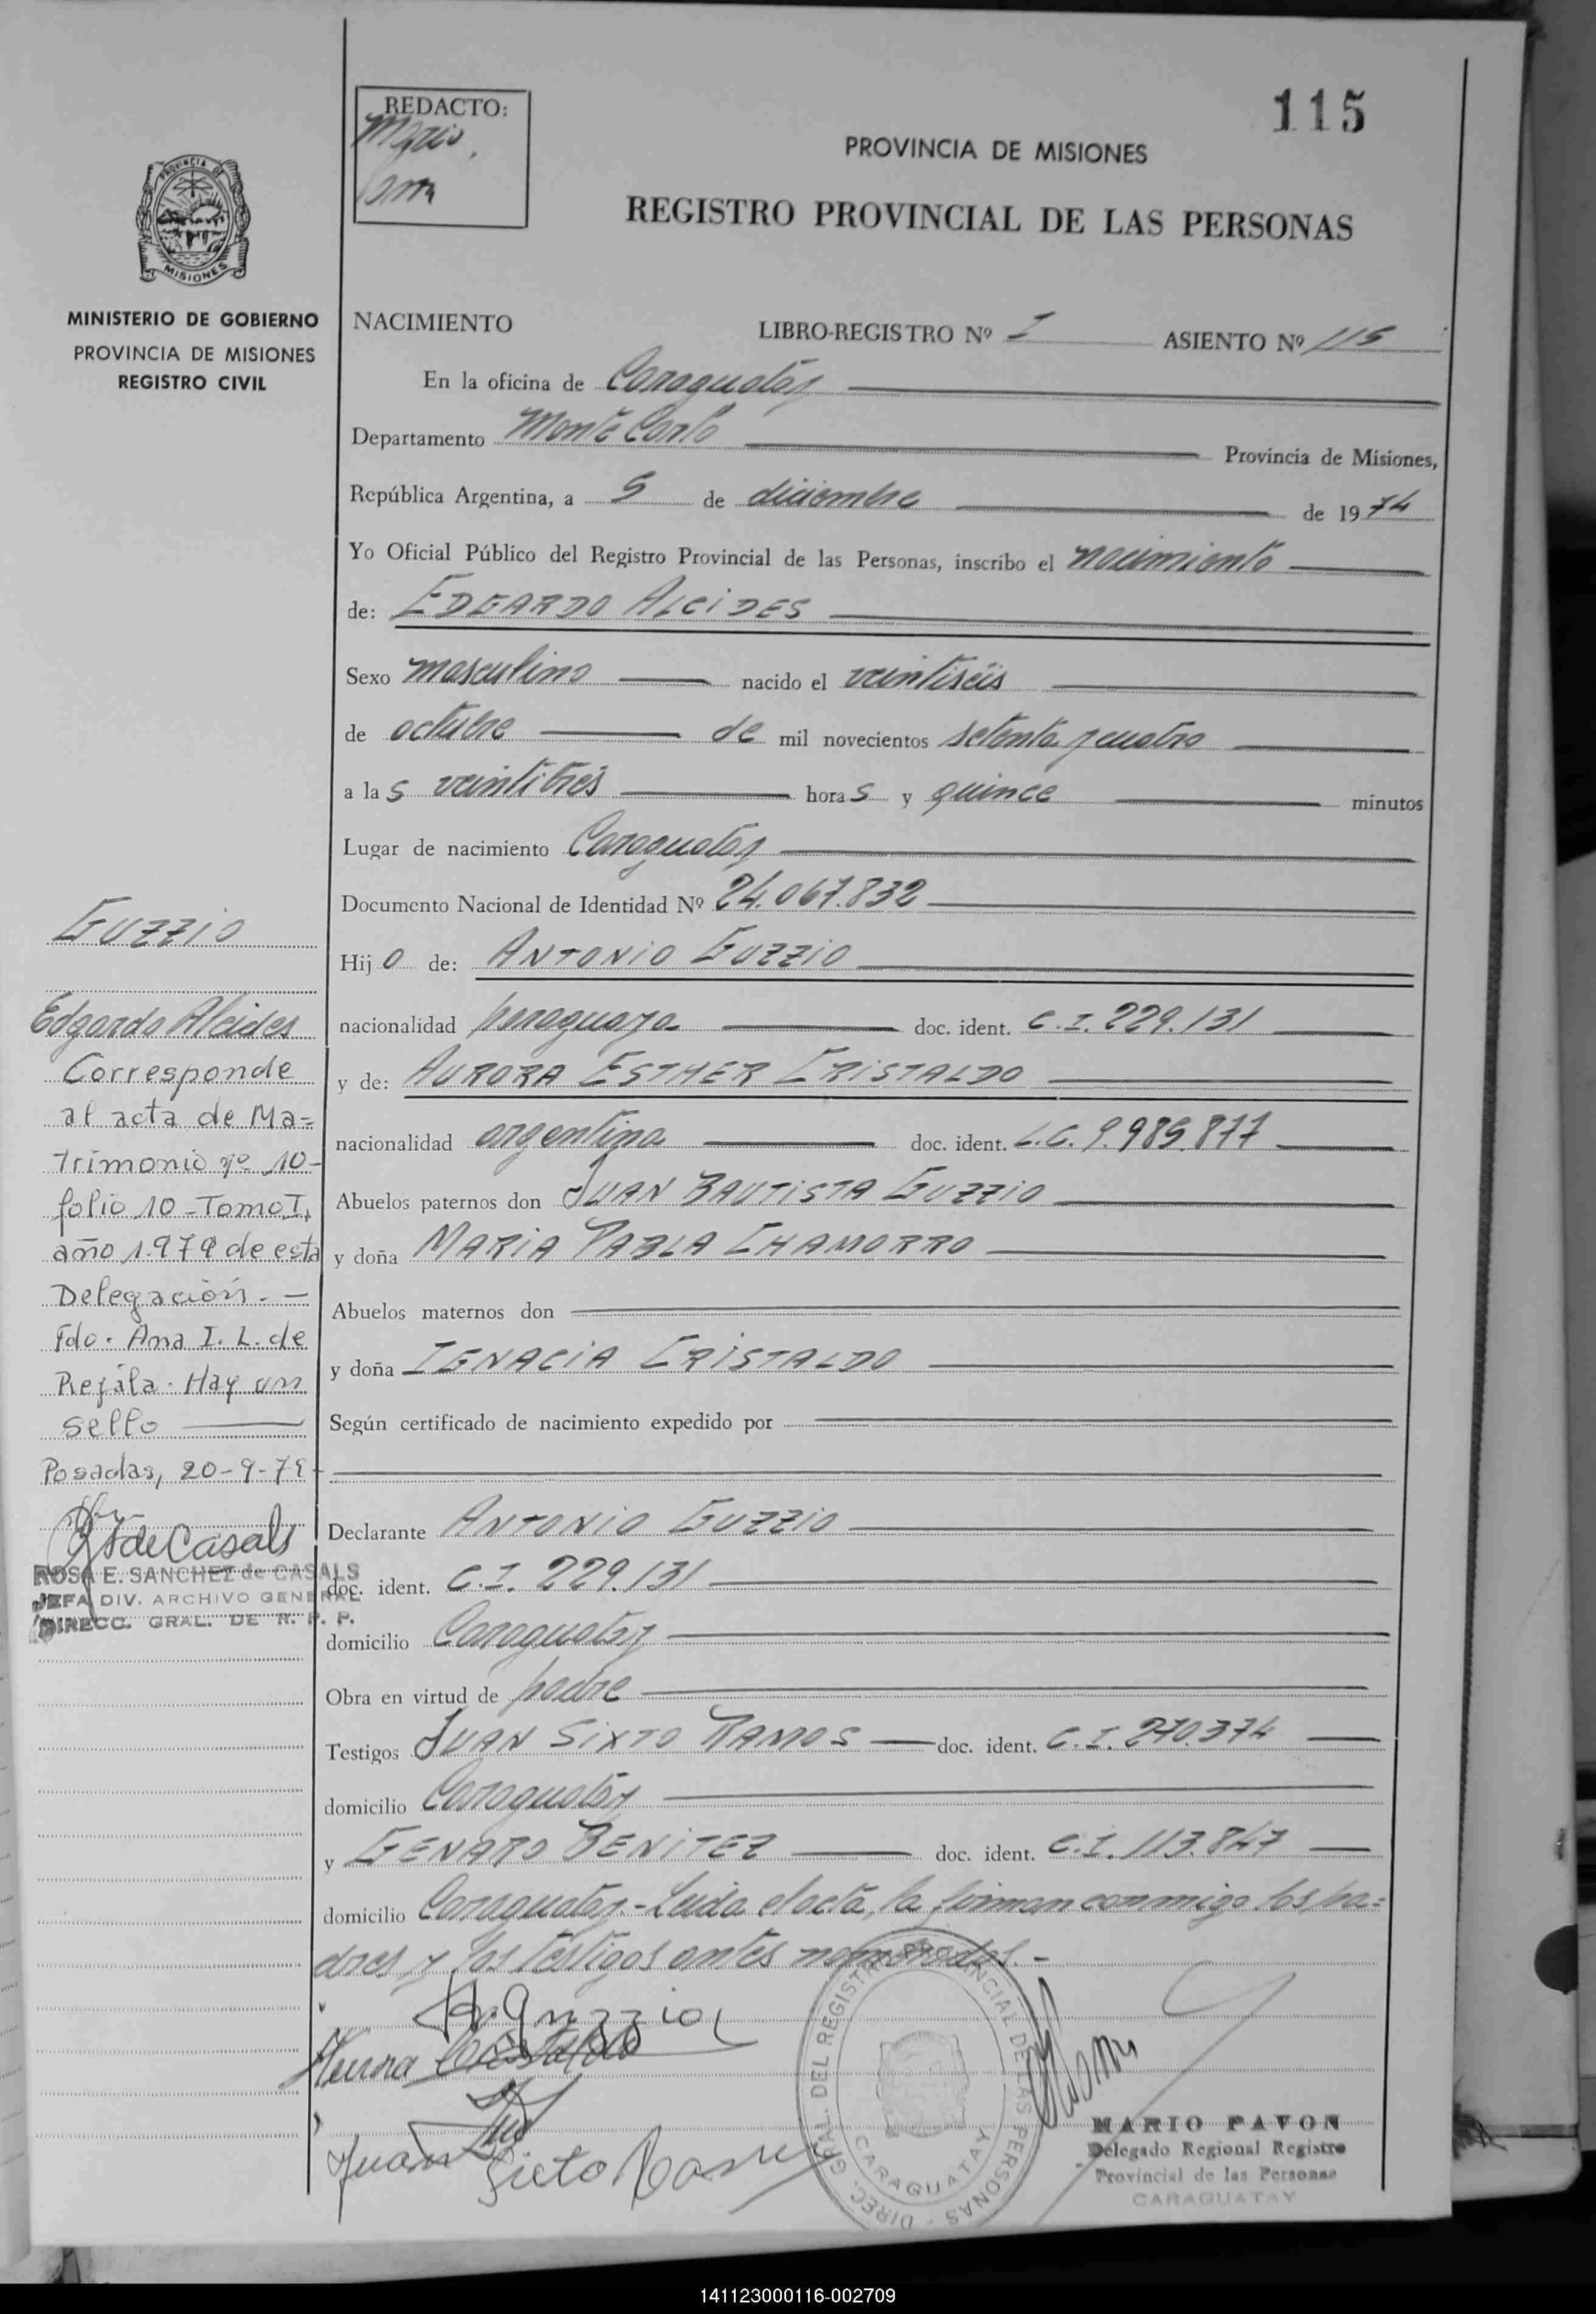 115
REDACTO:
Mario
PROVINCIA DE MISIONES
REGISTRO PROVINCIAL DE LAS PERSONAS
PROVINCIA DE
MISIONES
MINISTERIO DE GOBIERNO
PROVINCIA DE MISIONES
REGISTRO CIVIL
NACIMIENTO LIBRO-REGISTRO Nº I ASIENTO Nº 115
En la oficina de Caraguatay
Departamento Monte Carlo Provincia de Misiones,
República Argentina, a 5 de diciembre de 1974
Yo Oficial Público del Registro Provincial de las Personas, inscribo el nacimiento
de: EDGARDO ALCIDES
Sexo masculino nacido el veintiséis
de octubre de mil novecientos setenta y cuatro
a las veintitrés horas y quince minutos
Lugar de nacimiento Caraguatay
Documento Nacional de Identidad Nº 24.067.832
Hijo de: ANTONIO GUZZIO
nacionalidad paraguaya doc. ident. C.I. 229.131
y de: AURORA ESTHER CRISTALDO
nacionalidad argentina doc. ident. L.C. 9.985.877
Abuelos paternos don JUAN BAUTISTA GUZZIO
y doña MARIA PABLA CHAMORRO
Abuelos maternos don
y doña IGNACIA CRISTALDO
Según certificado de nacimiento expedido por
Declarante ANTONIO GUZZIO
doc. ident. C.I. 229.131
domicilio Caraguatay
Obra en virtud de padre
Testigos JUAN SIXTO RAMOS doc. ident. C.I. 270.374
domicilio Caraguatay
y GENARO BENITEZ doc. ident. C.I. 113.847
domicilio Caraguatay.- Leida el acta, la firman conmigo los pa=
dres y los testigos antes nombrados.-
GUZZIO
Edgardo Alcides
Corresponde
al acta de Ma=
trimonio nº 10-
folio 10 - Tomo I,
año 1.979 de esta
Delegación. -
Fdo. Ana I. L. de
Rejala. Hay un
sello
Posadas, 20-9-79
R S de Casals
ROSA E. SANCHEZ de CASALS
JEFA DIV. ARCHIVO GENERAL
DIRECC. GRAL. DE R. P. P.
A. Guzzio
Aurora Cristaldo
Juan Sixto Ramos
DIREC. GRAL. DEL REGISTRO PROVINCIAL DE LAS PERSONAS -
CARAGUATAY
MARIO PAVON
Delegado Regional Registro
Provincial de las Personas
CARAGUATAY
141123000116-002709